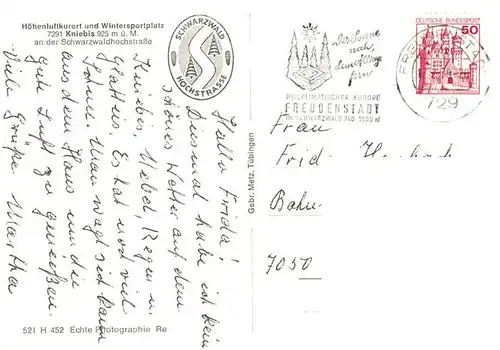 Höhenluftkurort und Wintersportplatz
7291 Kniebis 925 m ü. M.
an der Schwarzwaldhochstraße
SCHWARZWALD
HOCHSTRASSE
Hallo Frida!
Diesmal habe ich kein
schönes Wetter auf dem
Kniebis. Nebel, Regen u.
Es hat noch viel
Man wagt sich kaum
aus dem Haus um die
gute Luft zu genießen.
Viele Grüße Martha
521 H 452 Echte Photographie Re
Gebr. Metz, Tübingen
Der Sonne
nah,
dem Alltag
fern
HEILKLIMATISCHER KURORT
FREUDENSTADT
IM SCHWARZWALD 740-1000 m
DEUTSCHE BUNDESPOST
50
729
Frau
Frid
7050